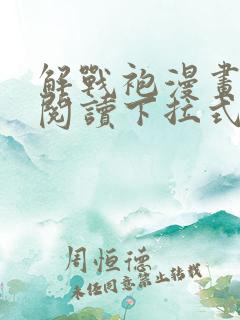 解戰袍漫畫
閱讀下拉式
周恒德
未经同意禁止转载